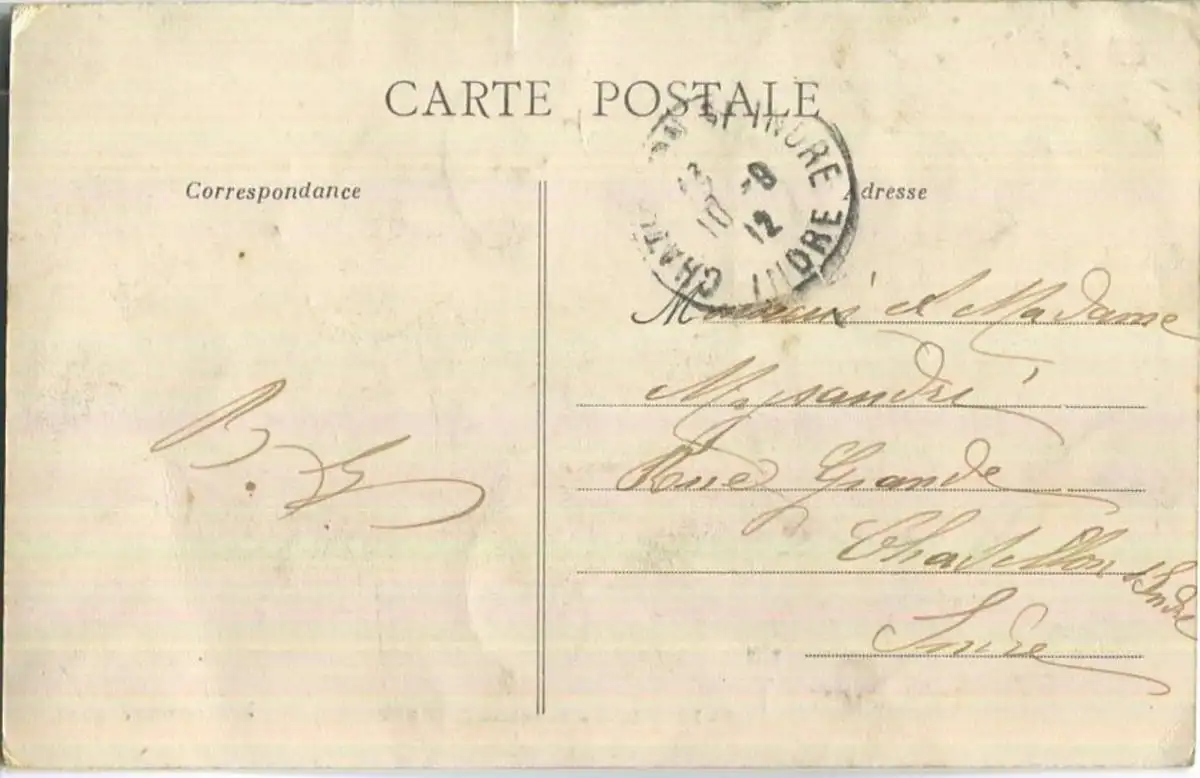 CARTE POSTALE
Correspondance
Adresse
CHATILLON S/ INDRE
INDRE
8
10 12
Monsieur et Madame
Rue Grande
Chatillon s/Indre
Indre